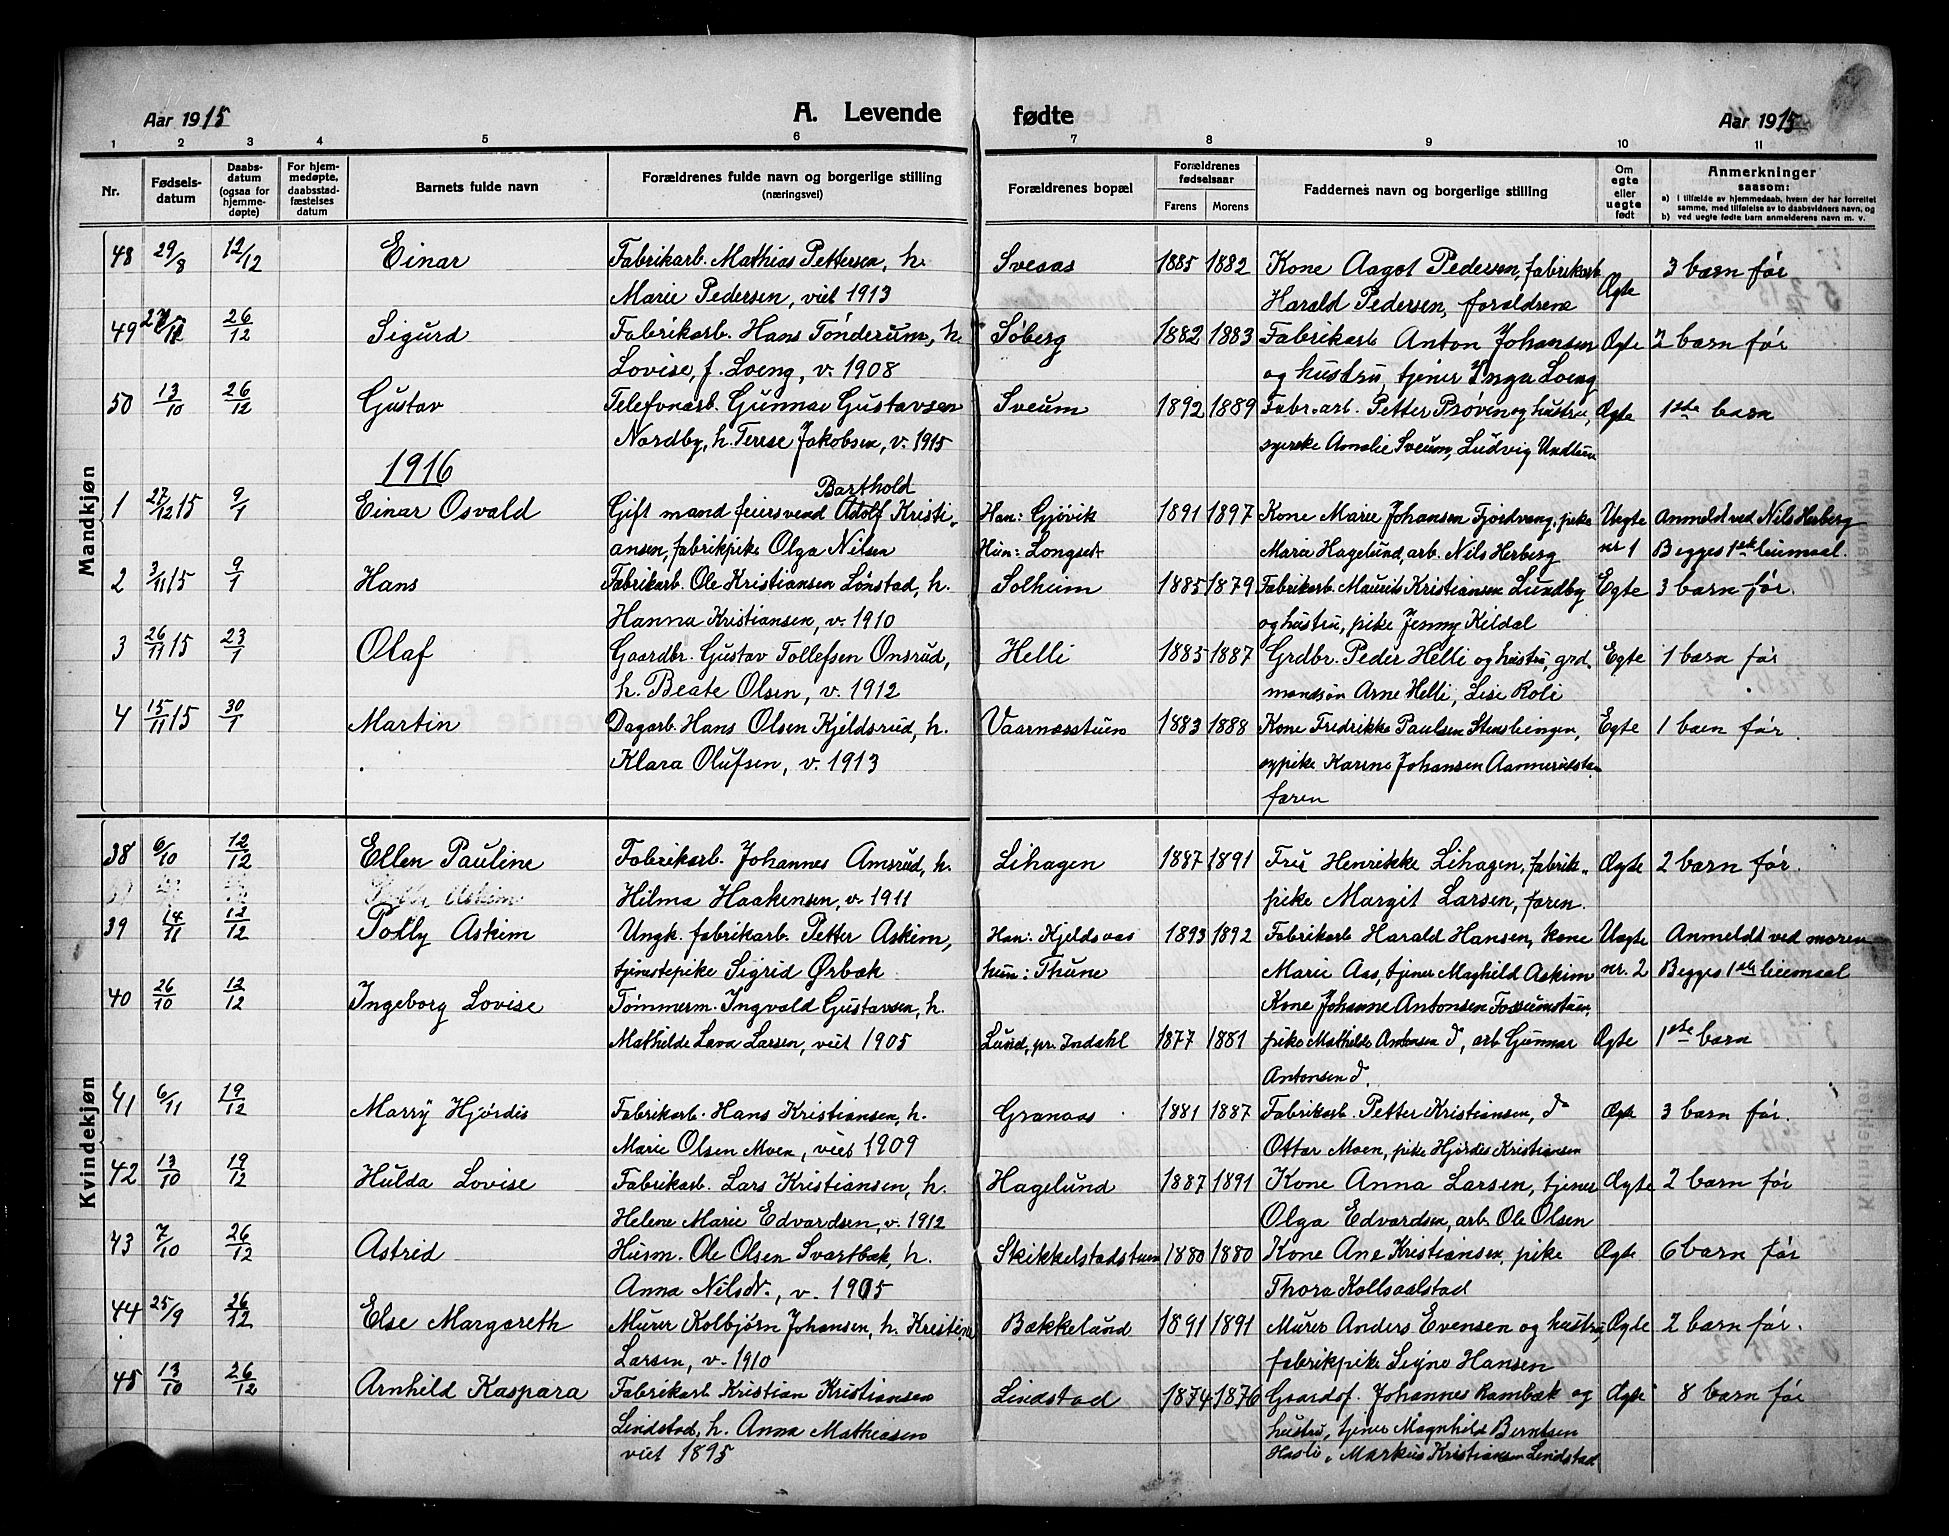 Aar 1915 A. Levende fødte Aar 1915
1 2 3 4 5 6 7 8 9 10 11
Nr. Fødselsdatum Daabsdatum (ogsaa for hjemmedøpte) For hjemmedøpte, daabsstadfæstelses datum Barnets fulde navn Forældrenes fulde navn og borgerlige stilling (næringsvei) Forældrenes bopæl Forældrenes fødselsaar Farens Morens Faddernes navn og borgerlige stilling Om egte eller uegte født Anmerkninger saasom:
a) I tilfælde av hjemmedaab, hvem der har forrettet samme, med tilføielse av to daabsvidners navn, og
b) ved uegte fødte barn anmelderens navn m. v.
Mandkjøn
48 29/8 12/12 Einar Fabrikarb. Mathias Pettersen, h. Sveaas 1885 1882 Kone Aagot Pedersen, fabrikarb. Ægte 3 barn før
Marie Pedersen, viet 1913 Harald Pedersen, forældrene
49 26/12 Sigurd Fabrikarb. Hans Tønderum, h. Søberg 1882 1883 Fabrikarb Anton Johansen Ægte 2 barn før
Lovise, f. Loeng, v. 1908 og hustru, tjener Inga Loeng
50 13/10 26/12 Gustav Telefonarb. Gunnar Gustavsen Sveum 1892 1889 Fabr. arb. Petter Prøven og hustru, Ægte 1ste barn
Nordby, h. Terese Jakobsen, v. 1915 syerske Amalie Sveum, Ludvig
1916
Barthold
1 27/12 15 9/1 Einar Osvald Gift mand feiersvend Adolf Kristi- Han: Gjøvik 1891 1897 Kone Marie Johansen Fjordvang, pike Uegte Anmeldt ved Nils Herberg
ansen, fabrikpike Olga Nilsen Hun: Longset Maria Hagelund, arb. Nils Herberg nr 1 Begges 1ste leiermaal.
2 3/11 15 9/1 Hans Fabrikarb. Ole Kristiansen Lønstad, h. Solheim 1885 1879 Fabrikarb. Maurits Kristiansen Lundby Egte 3 barn før.
Hanna Kristiansen, v. 1910 og hustru, pike Jenny Kildal
3 26/11 15 23/1 Olaf Gaardbr. Gustav Tollefsen Onsrud, Helli 1885 1887 Grdbr. Peder Helli og hustru, grd- Egte 1 barn før
h. Beate Olsen, v. 1912 mandsøn Arne Helli, Lise Roli
4 15/11 15 30/1 Martin Dagarb. Hans Olsen Kjeldsrud, h. Vaarnæsstuen 1883 1888 Kone Fredrikke Paulsen Egte 1 barn før.
Klara Olufsen, v. 1913 sypike Karen Johansen
faren
Kvindekjøn
38 6/10 12/12 Ellen Pauline Fabrikarb. Johannes Amsrud, h. Lihagen 1887 1891 Fru Henrikke Lihagen, fabrik- Ægte 2 barn før.
Hilma Haakensen, v. 1911 pike Margit Larsen, faren.
39 14/11 12/12 Polly Askim Ungk. fabrikarb. Petter Askim, Han: Kjeldsaas 1893 1892 Fabrikarb Harald Hansen, kone Uægte Anmeldt ved moren
tjenestepike Sigrid Ørbæk hun: Thune Marie Aas, tjener Maghild Askim nr. 2 Begges 1ste leiermaal
40 26/10 12/12 Ingeborg Lovise Tømmerm. Ingvald Gustavsen, h. Kone Johanne Antonsen Fossumstuen,
Mathilde Lava Larsen, viet 1905 Lund, pr. Indahl 1877 1881 pike Mathilde Antonsen do, arb Gunnar Ægte 1ste barn
Antonsen do.
41 6/11 19/12 Marry Hjørdis Fabrikarb. Hans Kristiansen, h. Granaas 1881 1887 Fabrikarb. Petter Kristiansen, do Ægte 3 barn før.
Marie Olsen Moen, viet 1909 Ottar Moen, pike Hjørdis Kristiansen
42 13/10 19/12 Hulda Lovise Fabrikarb. Lars Kristiansen, h. Hagelund 1887 1891 Kone Anna Larsen, tjener Ægte 2 barn før
Helene Marie Edvardsen, v. 1912 Olga Edvardsen, arb. Ole Olsen
43 7/10 26/12 Astrid Husm. Ole Olsen Svartbæk, h. Skikkelstadstuen 1880 1880 Kone Ane Kristiansen, pike Ægte 6 barn før
Anna Nilsdr., v. 1905 Thora
44 25/9 26/12 Else Margareth Murer Kolbjørn Johansen, h. Kristine Bækkelund 1891 1891 Murer Anders Evensen og hustru, Ægte 2 barn før.
Larsen, v. 1910 fabrikpike Signe Hansen
45 13/10 26/12 Arnhild Kaspara Fabrikarb. Kristian Kristiansen Lindstad 1874 1876 Gaardsf. Johannes Rambæk og Ægte 8 barn før
Lindstad, h. Anna Mathiasen hustru, tjener Magnhild Berntsen
viet 1895 Hasle, Markus Kristiansen Lindstad